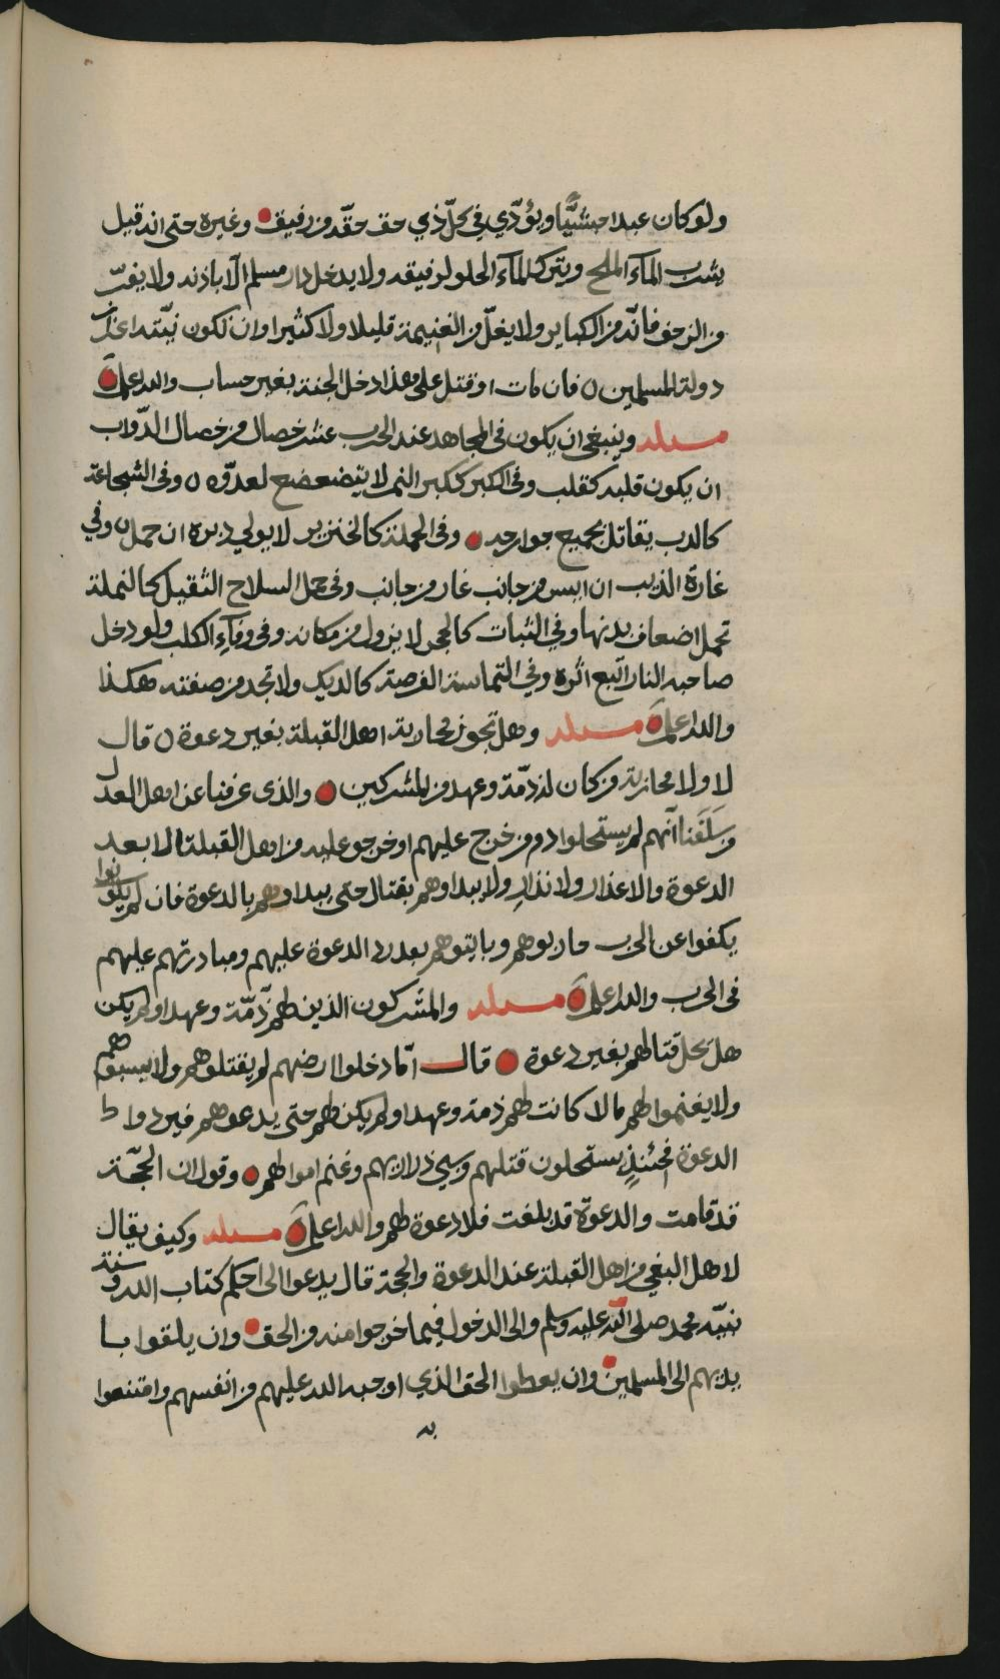 ولو كان عبدا حبشيًّا ويؤدّي في كلّ ذي حق حقّه من رفيق وغيره حتى انه قيل
يشرب الماء المالح ويترك الماء الحلو لرفيقه ولا يدخل دار مسلم الّا باذنه ولا يفرّ
من الزحف فانّه من الكباير ولا يغلّ من الغنيمة قليلا ولا كثيرا وان تكون نيّته اعزاز
دولة المسلمين ٥ فان مات او قتل على هذا دخل الجنة بغير حساب والله اعلم
مسئلة وينبغى ان يكون فى المجاهد عند الحرب عشر خصال من خصال الدّواب
ان يكون قلبه كقلب وفى الكبر ككبر النمر لا يتضعضع لعدوّه ٥ وفى الشجاعة
كالدب يقاتل بجميع جوارحه وفى الحملة كالخنزير لا يولي دبره ان حمل ٥ وفي
غارة الذيب ان ايس من جانب غار من جانب وفى حمل السلاح الثقيل كالنملة
تحمل اضعاف بدنها وفي الثبات كالحجر لا يزول من مكانه وفى وفآء الكلب ولو دخل
صاحبه النار اتّبع اثره وفي التماسة الفرصة كالديك ولا تجد من صفته هكذا
والله اعلم مسئلة وهل تجوز محاربة اهل القبلة بغير دعوة ٥ قال
لا ولا محاربة من كان له ذمّة وعهد من المشركين والذى عرفنا عن اهل العدل
من سَلَفَنا انّهم لم يستحلوا دم من خرج عليهم او خرجو عليه من اهل القبلة الا بعد
الدعوة والاعذار ولانذارِ ولا يبداوهم بقتال حتى يبداوهم بالدعوة فان لم يتوبوا
يكفوا عن الحرب حاربوهم وبايتوهم بعد رد الدعوة عليهم ومبادرتهم عليهم
فى الحرب والله اعلم مسئلة والمشركون الذين لهم ذمّة وعهد او لم يكن
هل يحل قتالهم بغير دعوة قال انّما دخلوا ارضهم لم يقتلوهم ولا يسبوهم
ولا يغنموا لهم مالا كانت لهم ذمة وعهد او لم يكن لهم حتى يدعوهم فيردوا
الدعوة فحينئذٍ يستحلون قتلهم وسبي ذراريهم وغنم اموالهم وقول ان الحجّة
قد قامت والدعوة قد بلغت فلا دعوة لهم والله اعلم مسئلة وكيف يقال
لاهل البغي من اهل القبلة عند الدعوة والحجة قال يدعوا الى احكم كتاب الله وسنة
نبيّه محمد صلى الله عليه وسلم والى الدخول فيما خرجوا منه من الحق وان يلقوا با
يديهم الى المسلمين وان يعطوا الحق الذي اوجبه الله عليهم من انفسهم وامتنعوا